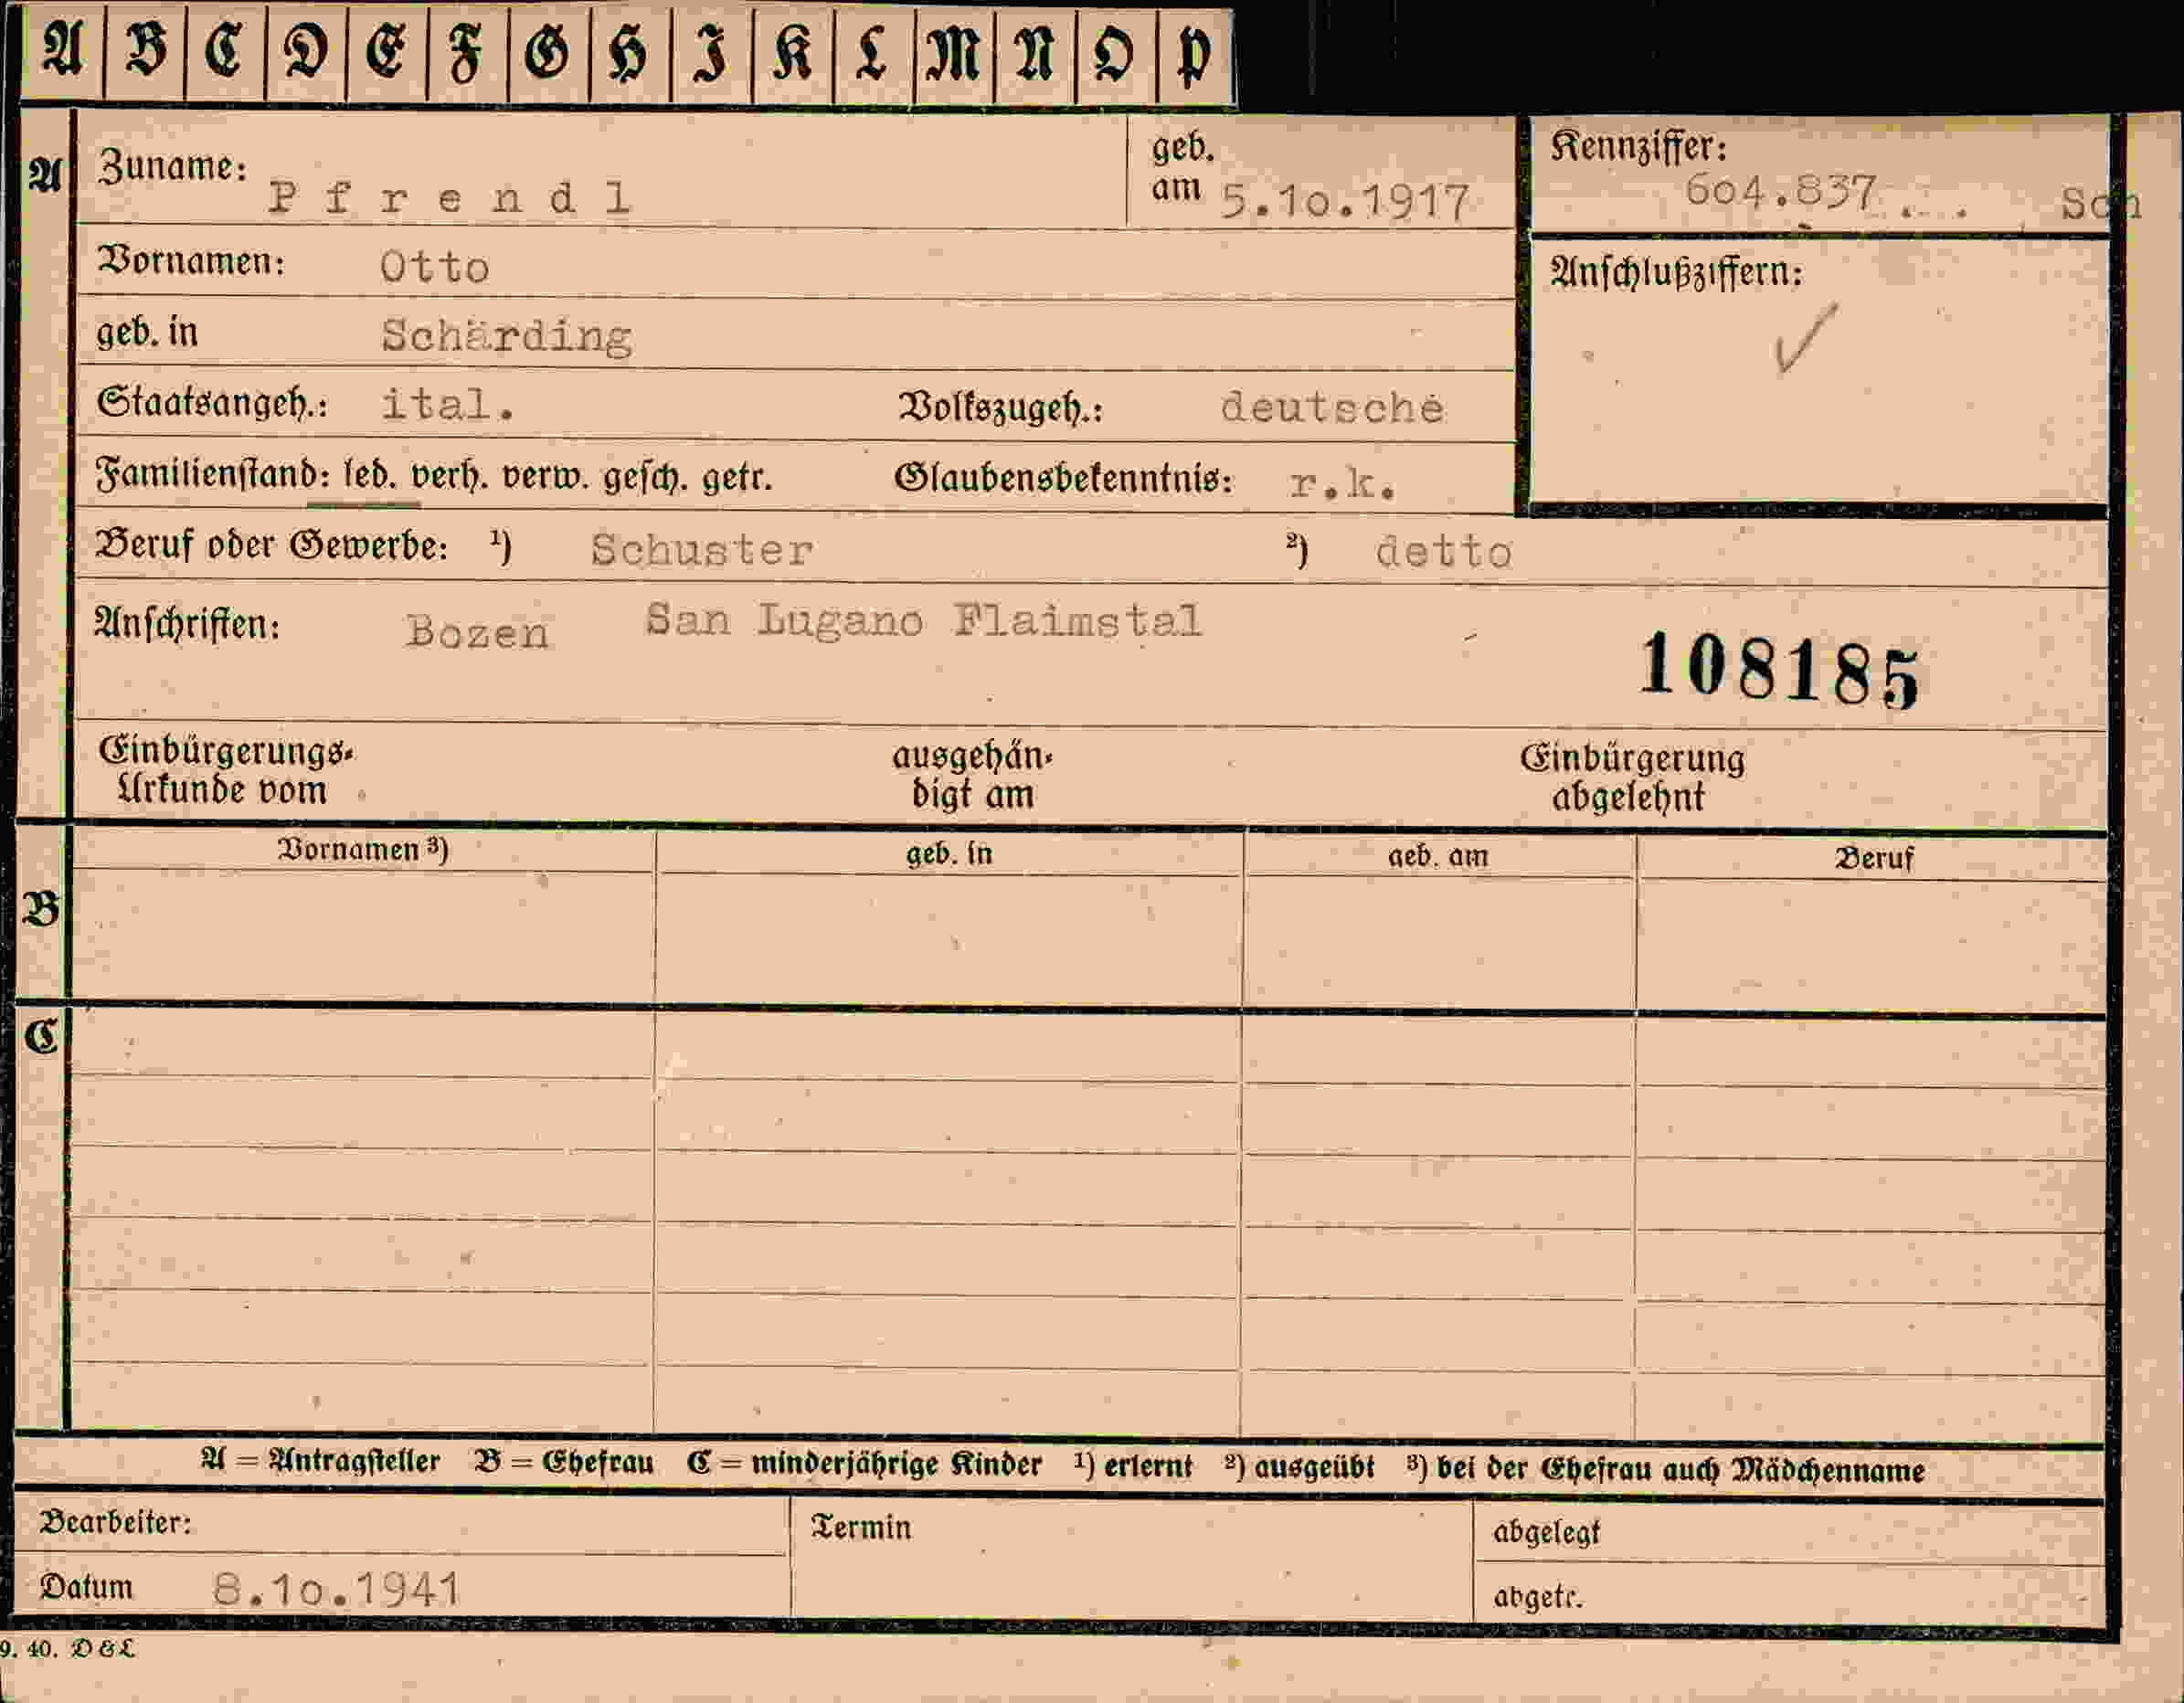 A B C D E F G H I K L M N O P
A Zuname: Pfrendl geb. am 5.10.1917 Kennziffer: 604.837 Sch
Vornamen: Otto Anschlußziffern: ✓
geb. in Schärding
Staatsangeh.: ital. Volkszugeh.: deutsche
Familienstand: led. verh. verw. gesch. getr. Glaubensbekenntnis: r.k.
Beruf oder Gewerbe: 1) Schuster 2) detto
Anschriften: Bozen San Lugano Flaimstal
108185
Einbürgerungs- ausgehän- Einbürgerung
Urkunde vom digt am abgelehnt
Vornamen 3) geb. in geb. am Beruf
B
C
A = Antragsteller B = Ehefrau C = minderjährige Kinder 1) erlernt 2) ausgeübt 3) bei der Ehefrau auch Mädchenname
Bearbeiter: Termin abgelegt
Datum 8.10.1941 abgetr.
9. 40. D & L